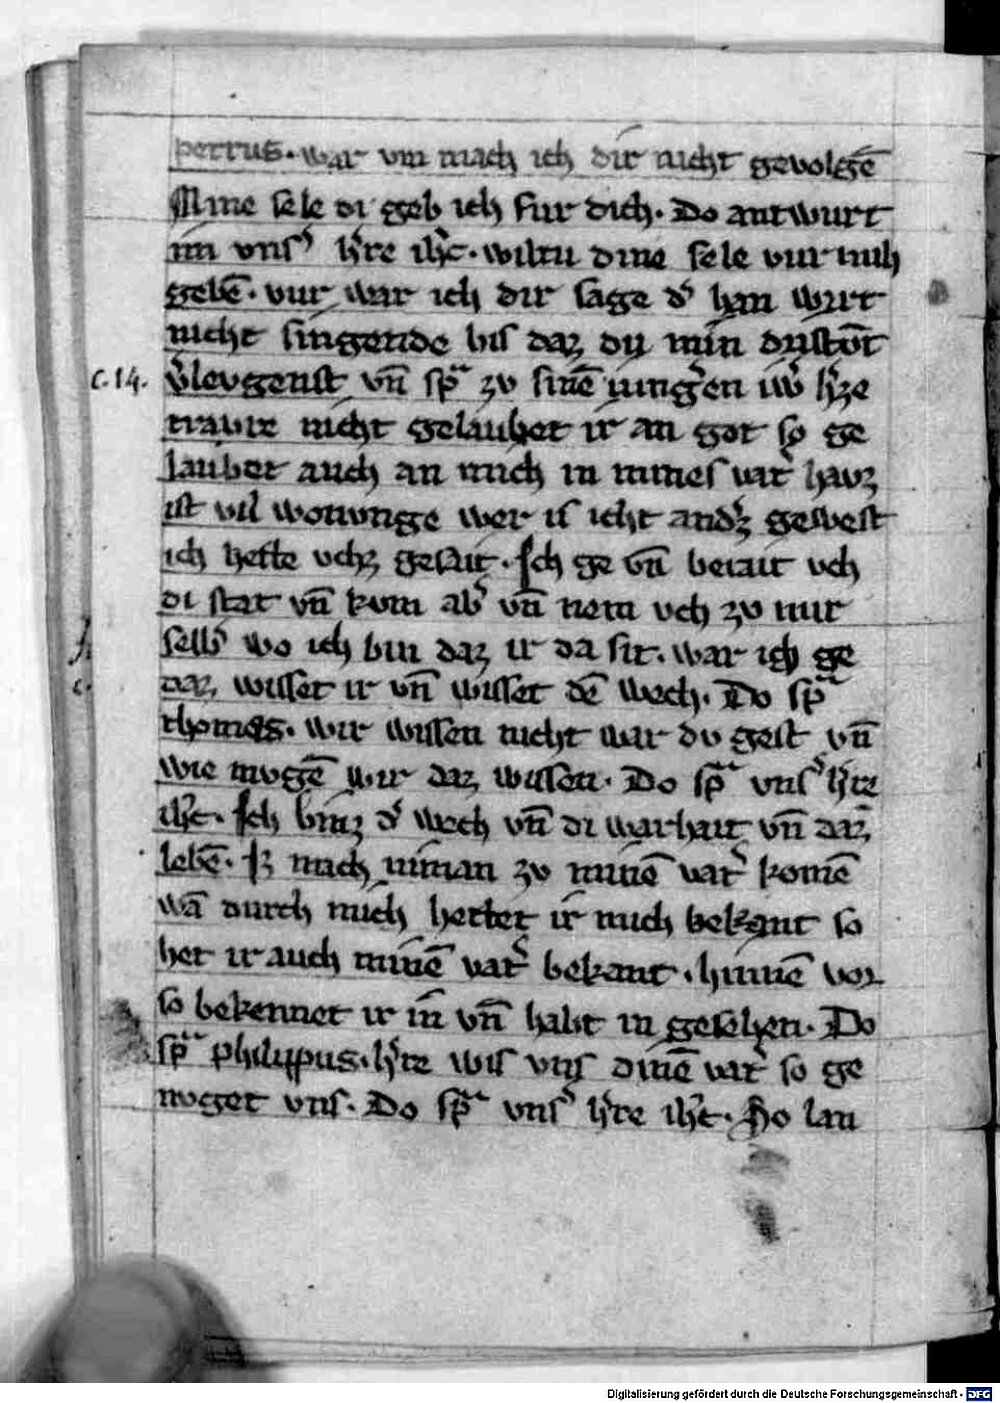 petrus. war vm mach ich dir nicht gevolgē
Mine sele di geb ich fur dich. Do antwurt
im vnsʼ hʼre ihc. wiltu dine sele vur mih
gebē. vur war ich dir sage dʼ han wirt
nicht singende bis daz du min dristōt
c.14. vʼleugenst vn̄ spᵃ zv sinē iungʼen iwʼ hʼze
traure nicht gelaubet ir an got so ge
laubet auch an mich in mines vatʼ hauz
ist vil wonunge wer is icht andʼz gewest
ich hette vchz gesait. Ich ge vn̄ berait vch
di stat vn̄ kom abʼ vn̄ nem vch zv mir
selbʼ wo ich bin daz ir da sit. war ich ge
daz wisset ir vn̄ wisset dē wech. Do spᵃ
thomas. wir wissen nicht war du gest vn̄
wie mugē wir daz wissen. Do spᵃ vnsʼ hʼre
ihc. Ich binz dʼ wech vn̄ di warhait vn̄ daz
lebē. Iz mach niman zv minē vatʼ komē
wā durch mich hettet ir mich bekant so
het ir auch minē vatʼ bekant. hinnē vor
so bekennet ir in vn̄ habt in gesehen. Do
spᵃ philippus. hʼre wis vns dinē vatʼ so ge
nvget vns. Do spᵃ vnsʼ hʼre ihc. So lan
Digitalisierung gefördert durch die Deutsche Forschungsgemeinschaft - DFG